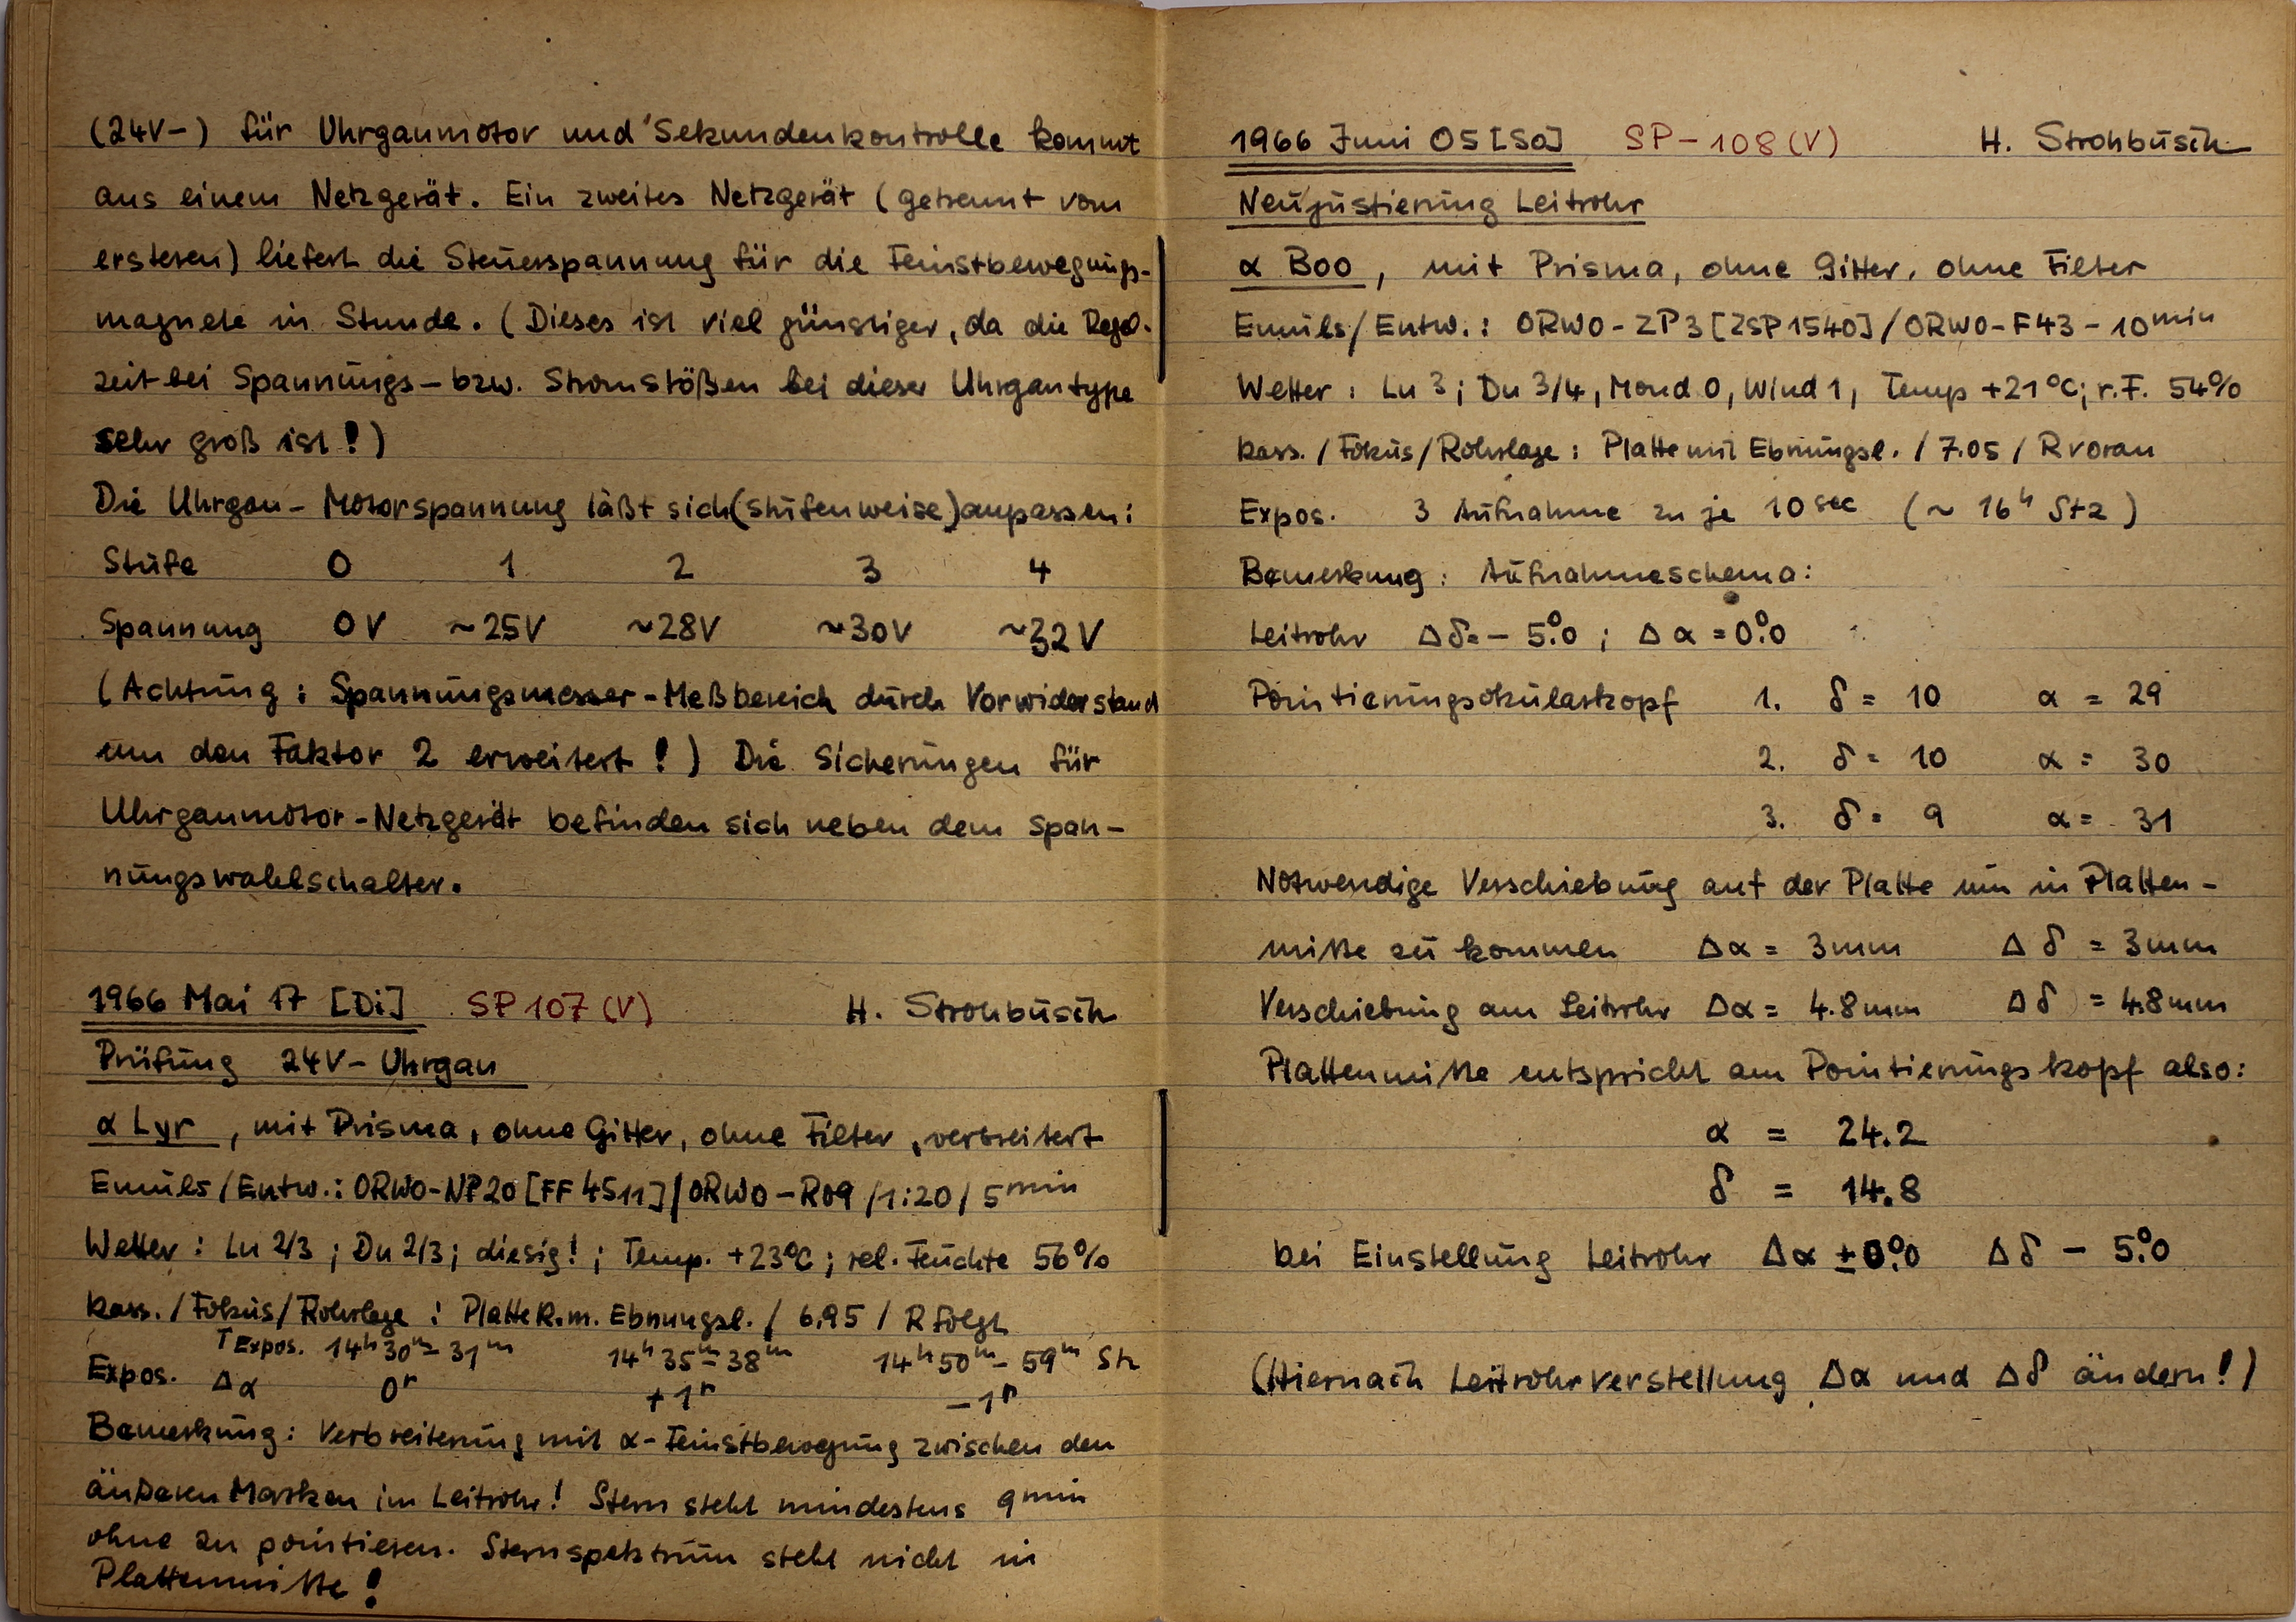 (24V-) für Uhrgangmotor und Sekundenkontrolle kommt
aus einem Netzgerät. Ein zweites Netzgerät (getrennt vom
ersteren) liefert die Steuerspannung für die Feinstbewegungs-
magnete in Stunde. (Dieses ist viel günstiger, da die Regel-
zeit bei Spannungs- bzw. Stromstößen bei dieser Uhrgangtype
sehr groß ist!)
Die Uhrgang-Motorspannung läßt sich (stufenweise) anpassen:
Stufe 0 1 2 3 4
Spannung 0V ~25V ~28V ~30V ~32V
(Achtung: Spannungsmesser-Meßbereich durch Vorwiderstand
um den Faktor 2 erweitert!) Die Sicherungen für
Uhrgangmotor-Netzgerät befinden sich neben dem Span-
nungswahlschalter.
1966 Mai 17 [Di] SP 107 (V) H. Strohbusch
Prüfung 24V-Uhrgang
α Lyr, mit Prisma, ohne Gitter, ohne Filter, verbreitert
Emuls/Entw.: ORWO-NP20 [FF 4511]/ORWO-R09/1:20/5min
Wetter: Lu 2/3; Du 2/3; diesig!; Temp. +23°C; rel. Feuchte 56%
Kass./Fokus/Rohrlage: Platte R.m. Ebnungsl./6.95/R folgt
TExpos. 14h30m-31m 14h35m-38m 14h50m-59m Stz
Expos. Δα 0r +1r -1r
Bemerkung: Verbreiterung mit α-Feinstbewegung zwischen den
äußeren Marken im Leitrohr! Stern steht mindestens 9min
ohne zu pointieren. Sternspektrum steht nicht in
Plattenmitte!
1966 Juni 05 [So] SP-108 (V) H. Strohbusch
Neujustierung Leitrohr
α Boo, mit Prisma, ohne Gitter, ohne Filter
Emuls/Entw.: ORWO-ZP3 [ZSP1540]/ORWO-F43-10min
Wetter: Lu 3; Du 3/4, Mond 0, Wind 1, Temp +21°C; r.F. 54%
Kass./Fokus/Rohrlage: Platte mit Ebnungsl./7.05/R voran
Expos. 3 Aufnahme zu je 10sec (~16h Stz)
Bemerkung: Aufnahmeschema:
Leitrohr Δδ=-5°.0; Δα=0°.0
Pointierungsokularkopf 1. δ = 10 α = 29
2. δ = 10 α = 30
3. δ = 9 α = 31
Notwendige Verschiebung auf der Platte um in Platten-
mitte zu kommen Δα = 3mm Δδ = 3mm
Verschiebung am Leitrohr Δα = 4.8mm Δδ = 4.8mm
Plattenmitte entspricht am Pointierungskopf also:
α = 24.2
δ = 14.8
bei Einstellung Leitrohr Δα ±0°.0 Δδ - 5°.0
(Hiernach Leitrohrverstellung Δα und Δδ ändern!)